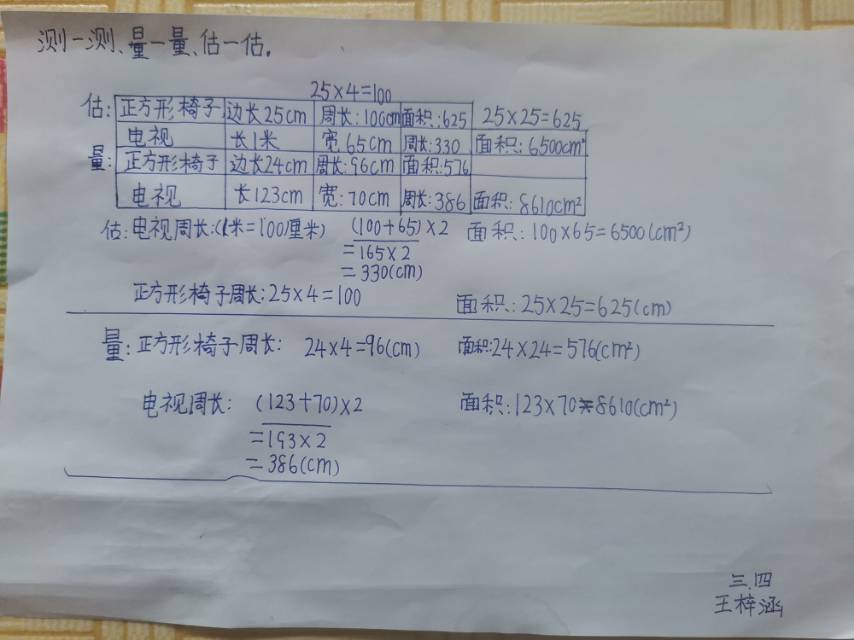 测一测、量一量、估一估。
25×4=100
估: 正方形椅子 边长25cm 周长:100cm 面积:625 25×25=625
电视 长1米 宽65cm 周长:330 面积:6500cm²
量: 正方形椅子 边长24cm 周长:96cm 面积:576
电视 长123cm 宽:70cm 周长:386 面积:8610cm²
估:电视周长:(1米=100厘米) (100+65)×2 面积:100×65=6500(cm²)
=165×2
=330(cm)
正方形椅子周长:25×4=100 面积:25×25=625(cm)
量:正方形椅子周长: 24×4=96(cm) 面积:24×24=576(cm²)
电视周长: (123+70)×2 面积:123×70=8610(cm²)
=193×2
=386(cm)
三.四
王梓涵